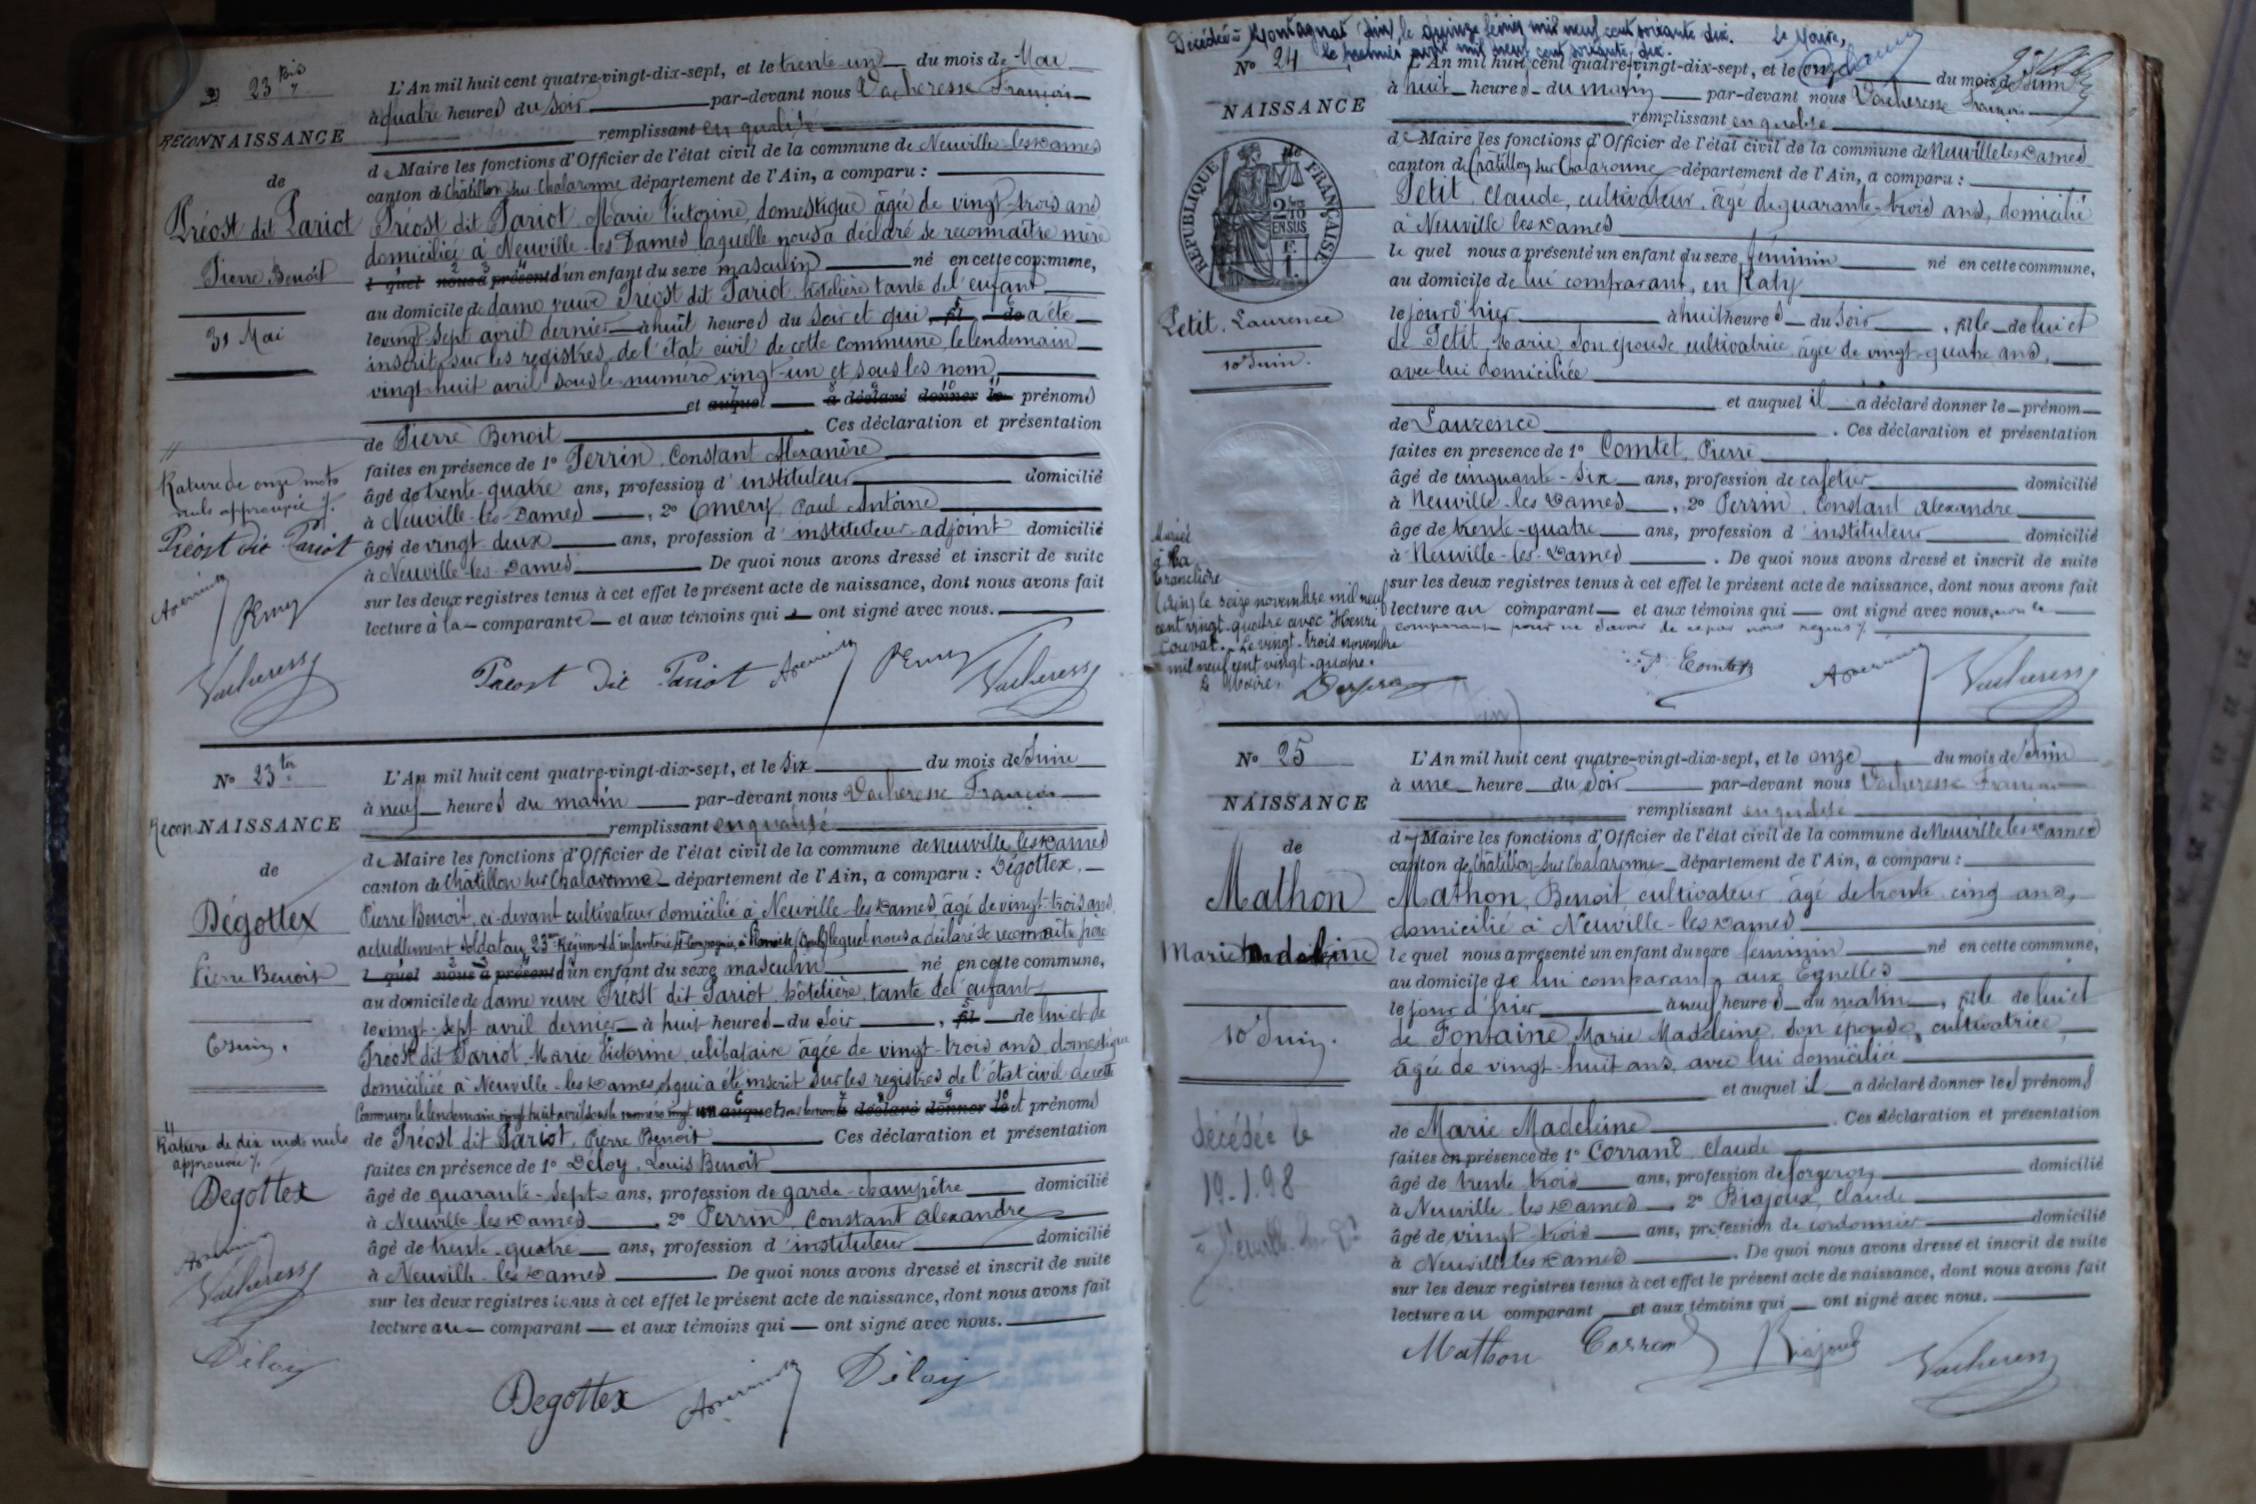 N° 23 bis
RECONNAISSANCE
de
Préost dit Pariot
Pierre Benoît
31 Mai
Rature de onze mots
nuls approuvée
Préost dit Pariot
Vacheresse
L'An mil huit cent quatre-vingt-dix-sept, et le trente-un du mois de Mai
à quatre heures du soir par-devant nous Vacheresse François
remplissant en qualité
de Maire les fonctions d'Officier de l'état civil de la commune de Neuville-les-Dames
canton de Châtillon sur Chalaronne département de l'Ain, a comparu :
Préost dit Pariot Marie Victorine, domestique âgée de vingt-trois ans
domiciliée à Neuville-les-Dames laquelle nous a déclaré se reconnaître mère
l quel nous a présenté d'un enfant du sexe masculin né en cette commune,
au domicile de dame veuve Préost dit Pariot hôtelière tante de l'enfant
le vingt-sept avril dernier à huit heures du soir et qui a été
inscrit sur les registres de l'état civil de cette commune le lendemain
vingt-huit avril sous le numéro vingt-un et sous les nom
et auquel a déclaré donner le prénoms
de Pierre Benoît . Ces déclaration et présentation
faites en présence de 1° Perrin Constant Alexandre
âgé de trente-quatre ans, profession d'instituteur domicilié
à Neuville-les-Dames, 2° Emery Paul Antoine
âgé de vingt-deux ans, profession d'instituteur adjoint domicilié
à Neuville-les-Dames De quoi nous avons dressé et inscrit de suite
sur les deux registres tenus à cet effet le présent acte de naissance, dont nous avons fait
lecture à la comparante et aux témoins qui ont signé avec nous.
Préost dit Pariot Vacheresse
N° 23 ter
ReconNAISSANCE
de
Dégottex
Pierre Benoît
6 Juin.
Rature de dix mots nuls
approuvée
Degottex
Vacheresse
Déloy
L'An mil huit cent quatre-vingt-dix-sept, et le six du mois de Juin
à neuf heures du matin par-devant nous Vacheresse François
remplissant en qualité
de Maire les fonctions d'Officier de l'état civil de la commune de Neuville les Dames
canton de Châtillon sur Chalaronne département de l'Ain, a comparu : Dégottex,
Pierre Benoît, ci-devant cultivateur domicilié à Neuville-les-Dames âgé de vingt-trois ans
actuellement soldat au 23me Régiment d'infanterie, lequel nous a déclaré se reconnaître père
l quel nous a présenté d'un enfant du sexe masculin né en cette commune,
au domicile de dame veuve Préost dit Pariot hôtelière, tante de l'enfant
le vingt-sept avril dernier à huit heures du soir , fil de lui et de
Préost dit Pariot Marie Victorine, célibataire âgée de vingt-trois ans domestique
domiciliée à Neuville-les-Dames et qui a été inscrit sur les registres de l'état civil de cette
Commune le lendemain vingt huit avril sous le numéro vingt un auquel a déclaré donner le et prénoms
de Préost dit Pariot, Pierre Benoît Ces déclaration et présentation
faites en présence de 1° Déloy, Louis Benoît
âgé de quarante-sept ans, profession de garde-champêtre domicilié
à Neuville-les-Dames, 2° Perrin Constant Alexandre
âgé de trente-quatre ans, profession d'instituteur domicilié
à Neuville-les-Dames De quoi nous avons dressé et inscrit de suite
sur les deux registres tenus à cet effet le présent acte de naissance, dont nous avons fait
lecture au comparant et aux témoins qui ont signé avec nous.
Degottex Déloy
Décédée à Montagnat (Ain) le quinze février mil neuf cent soixante dix. Le Maire,
le premier avril mil neuf cent soixante dix.
N° 24
NAISSANCE
de
RÉPUBLIQUE FRANÇAISE
2/10 EN SUS
Petit, Laurence
10 Juin.
Mariée
à La
Tranclière
(Ain) le seize novembre mil neuf
cent vingt-quatre avec Henri
Couvat. Le vingt-trois novembre
mil neuf cent vingt-quatre.
Le Maire,
L'An mil huit cent quatre-vingt-dix-sept, et le onze du mois de Juin
à huit heures du matin par-devant nous Vacheresse François
remplissant en qualité
de Maire les fonctions d'Officier de l'état civil de la commune de Neuville les Dames
canton de Châtillon sur Chalaronne département de l'Ain, a comparu :
Petit, Claude, cultivateur, âgé de quarante-trois ans, domicilié
à Neuville les Dames
le quel nous a présenté un enfant du sexe féminin né en cette commune,
au domicile de lui comparant, en Raty
le jour d'hier à huit heures du soir , fille de lui et
de Petit, Marie son épouse cultivatrice âgée de vingt-quatre ans,
avec lui domiciliée
et auquel il a déclaré donner le prénom
de Laurence . Ces déclaration et présentation
faites en présence de 1° Comtet, Pierre
âgé de cinquante-six ans, profession de cafetier domicilié
à Neuville-les-Dames, 2° Perrin Constant Alexandre
âgé de trente-quatre ans, profession d'instituteur domicilié
à Neuville-les-Dames . De quoi nous avons dressé et inscrit de suite
sur les deux registres tenus à cet effet le présent acte de naissance, dont nous avons fait
lecture au comparant et aux témoins qui ont signé avec nous, non le
comparant pour ne savoir de ce par nous requis
P. Comtet Vacheresse
N° 25
NAISSANCE
de
Mathon
Marie Madeleine
10 Juin.
décédée le
19.1.98
L'An mil huit cent quatre-vingt-dix-sept, et le onze du mois de Juin
à une heure du soir par-devant nous Vacheresse François
remplissant en qualité
de Maire les fonctions d'Officier de l'état civil de la commune de Neuville les Dames
canton de Châtillon-sur-Chalaronne département de l'Ain, a comparu :
Mathon, Benoît, cultivateur âgé de trente-cinq ans,
domicilié à Neuville-les-Dames
le quel nous a présenté un enfant du sexe féminin né en cette commune,
au domicile de lui comparant, aux Egnelles
le jour d'hier à neuf heures du matin , fille de lui et
de Fontaine Marie Madeleine son épouse, cultivatrice
âgée de vingt-huit ans, avec lui domiciliée
et auquel il a déclaré donner les prénoms
de Marie Madeleine . Ces déclaration et présentation
faites en présence de 1° Corrand Claude
âgé de trente-trois ans, profession de forgeron domicilié
à Neuville-les-Dames, 2° Brajoux, Claude
âgé de vingt-trois ans, profession de cordonnier domicilié
à Neuville les Dames . De quoi nous avons dressé et inscrit de suite
sur les deux registres tenus à cet effet le présent acte de naissance, dont nous avons fait
lecture au comparant et aux témoins qui ont signé avec nous.
Mathon Vacheresse